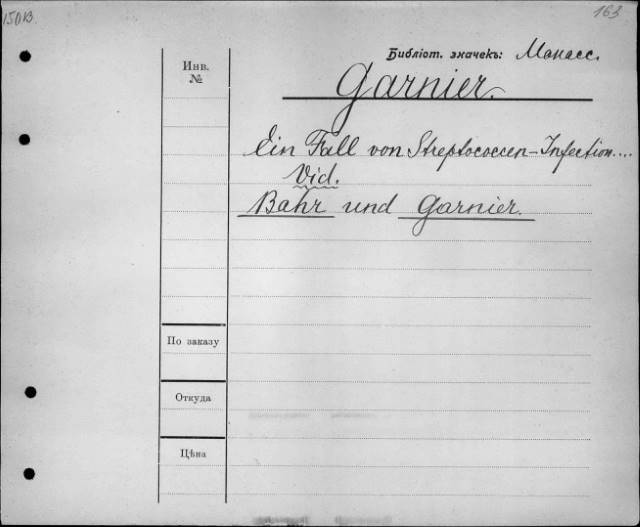 150В.
163
Библіот. значекъ: Манасс.
Инв.
№
Garnier.
Ein Fall von Streptococcen-Infection....
Vid.
Bahr und Garnier.
По заказу
Откуда
Цѣна